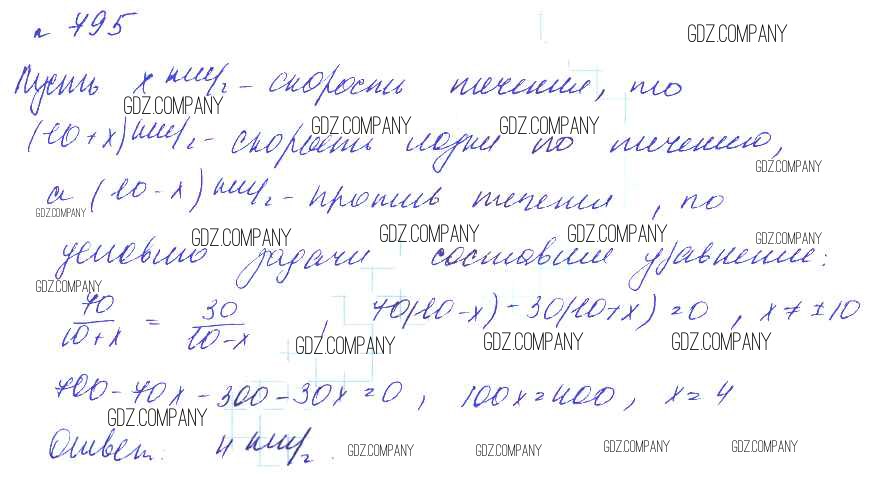 № 795
GDZ.COMPANY
Пусть x км/ч - скорость течения, то
GDZ.COMPANY
(10+x) км/ч - скорость лодки по течению,
GDZ.COMPANY GDZ.COMPANY
GDZ.COMPANY
а (10-x) км/ч - против течения, по
GDZ.COMPANY
GDZ.COMPANY GDZ.COMPANY GDZ.COMPANY GDZ.COMPANY
условию задачи составим уравнение:
GDZ.COMPANY
70/(10+x) = 30/(10-x), 70(10-x)-30(10+x)=0, x≠±10
GDZ.COMPANY GDZ.COMPANY GDZ.COMPANY
700-70x-300-30x=0, 100x=400, x=4
GDZ.COMPANY
Ответ: 4 км/ч.
GDZ.COMPANY GDZ.COMPANY GDZ.COMPANY GDZ.COMPANY